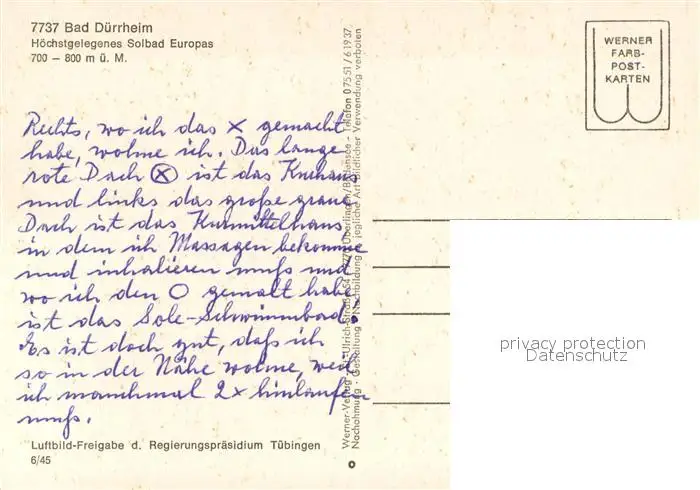 7737 Bad Dürrheim
Höchstgelegenes Solbad Europas
700 – 800 m ü. M.
WERNER
FARB-
POST-
KARTEN
Rechts, wo ich das × gemacht
habe, wohne ich. Das lange
rote Dach ⊗ ist das Kurhaus
und links das große graue
Dach ist das Kurmittelhaus
in dem ich Massagen bekomme
und inhalieren muß und
wo ich den O gemalt habe
ist das Sole-Schwimmbad.
Es ist doch gut, daß ich
so in der Nähe wohne, weil
ich manchmal 2× hinlaufen
muß.
Luftbild-Freigabe d. Regierungspräsidium Tübingen
6/45
Überlingen/Bodensee - Telefon 07551/61937
Nachahmung - Gestaltung - Nachbildung - jegliche Art bildlicher Verwendung verboten
privacy protection
Datenschutz